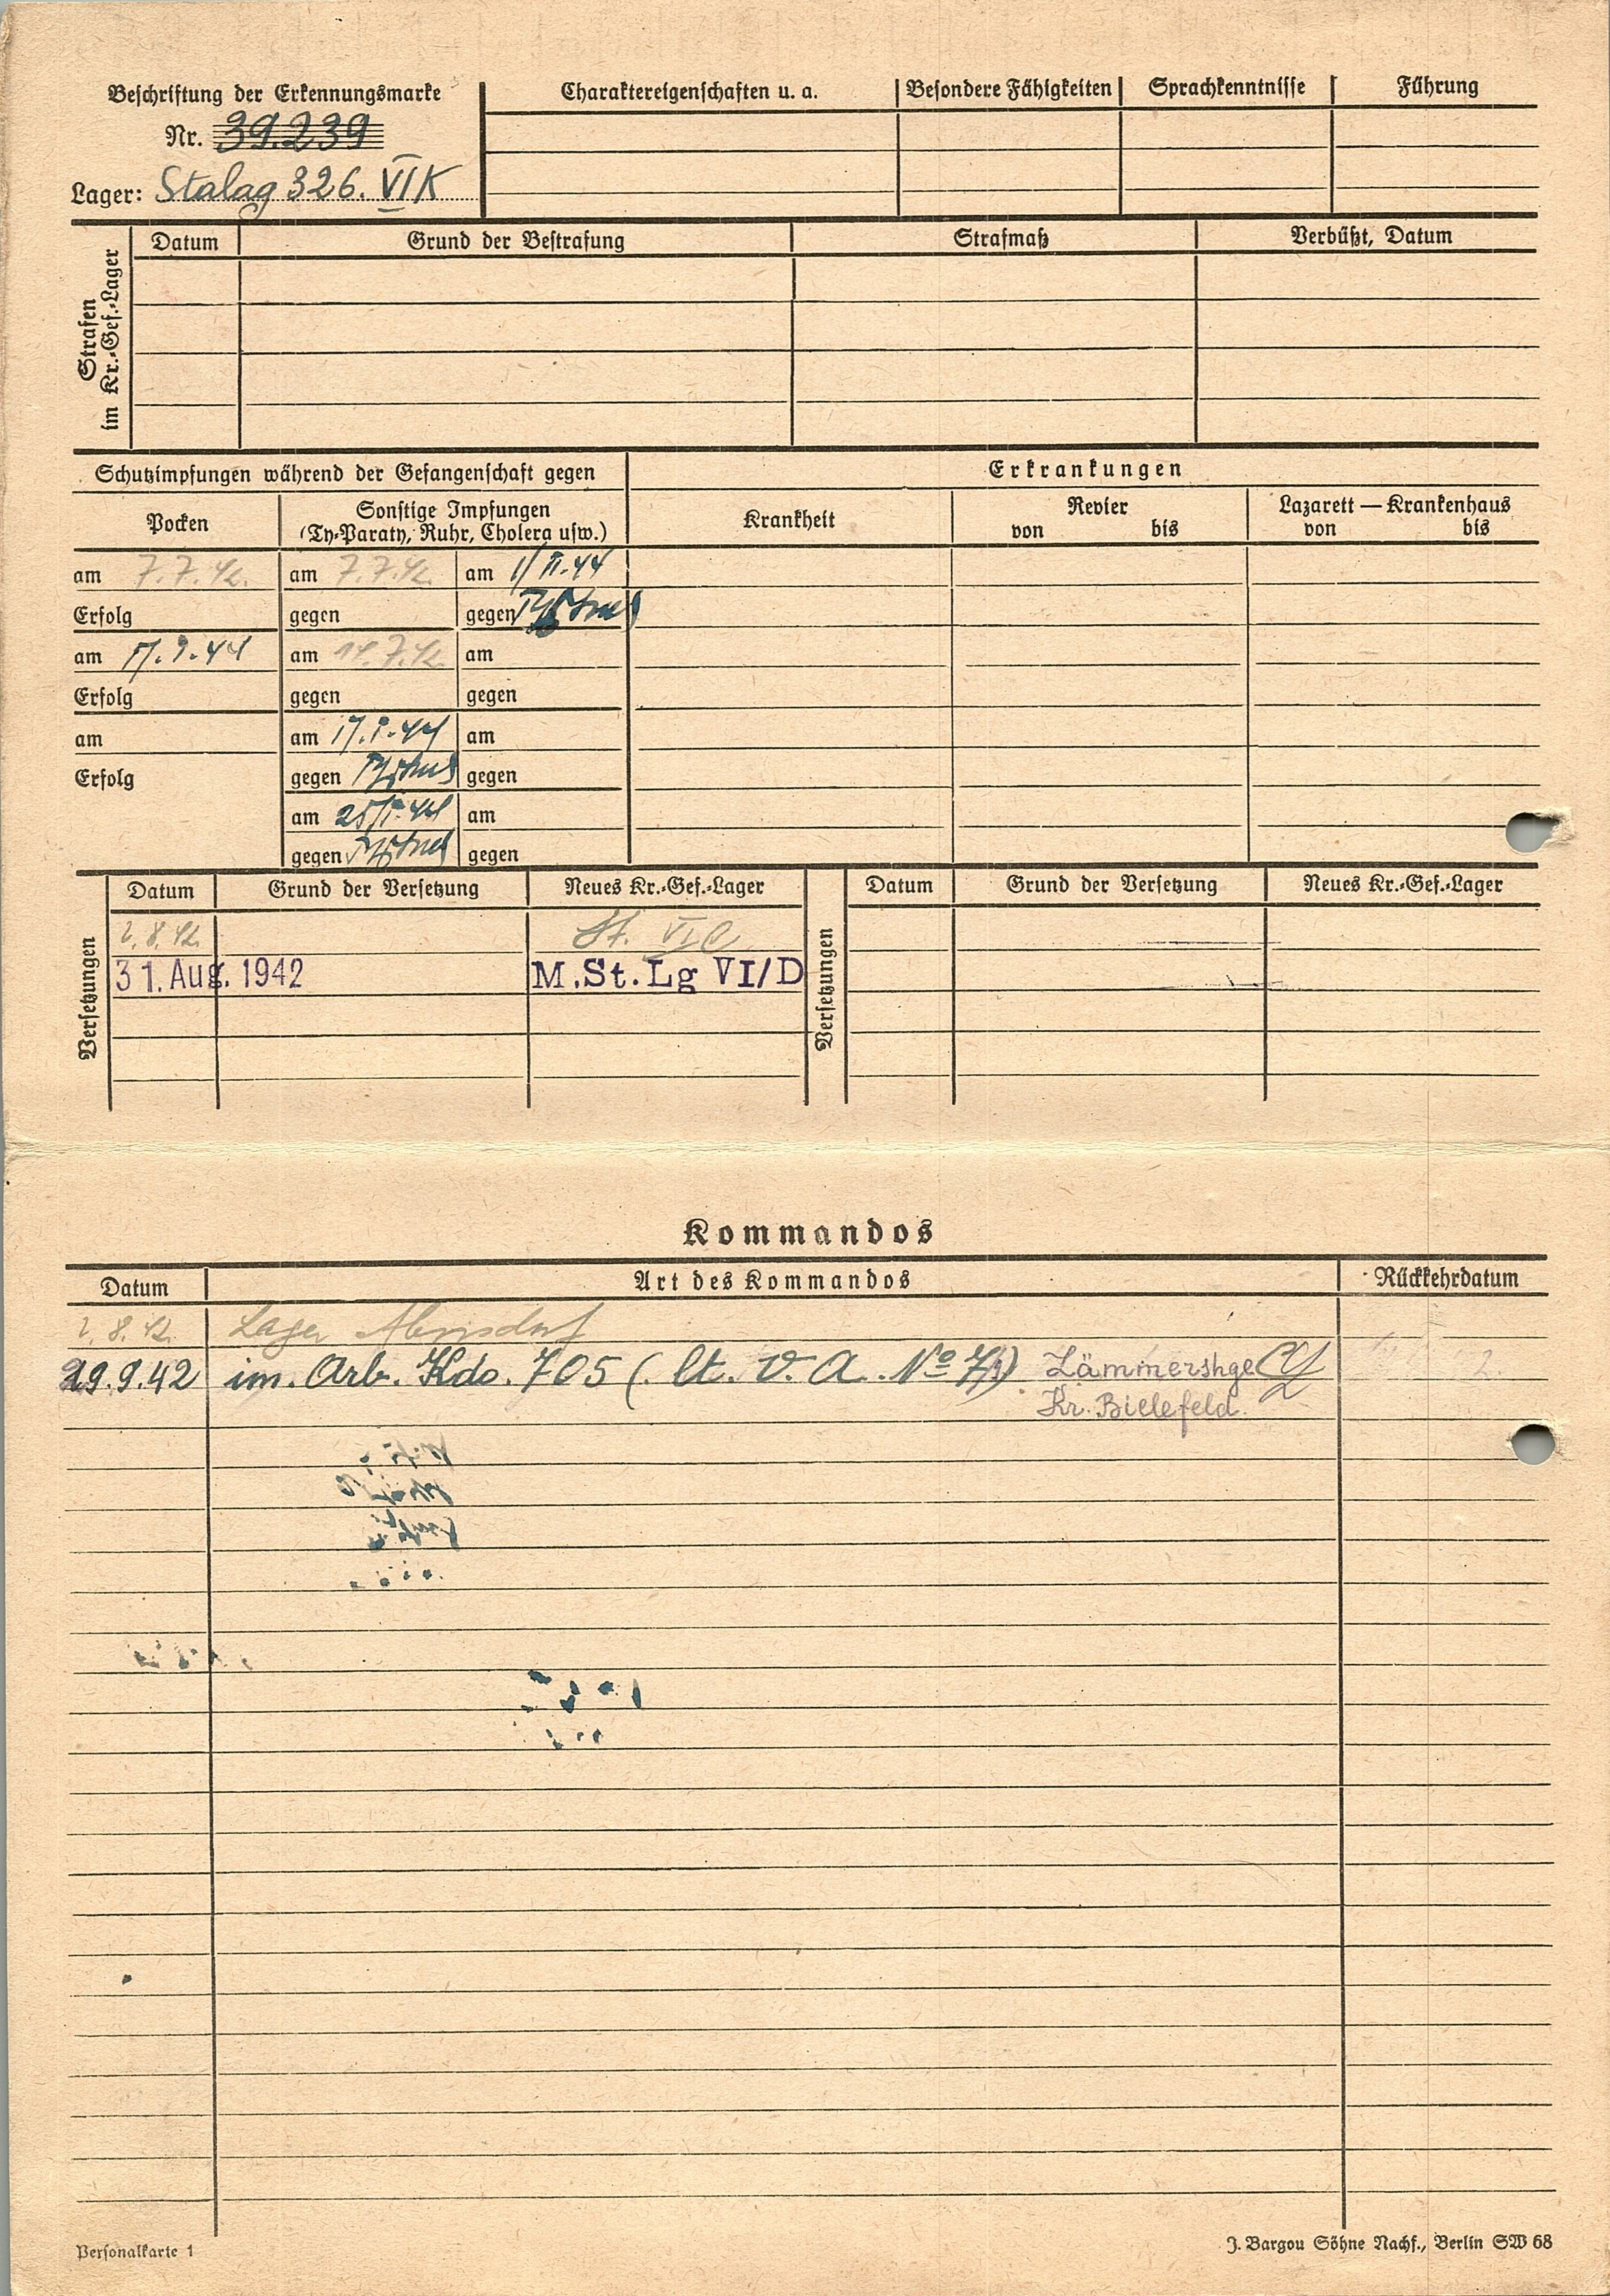 Beschriftung der Erkennungsmarke
Nr. 39.239
Lager: Stalag 326. VI K
Charaktereigenschaften u. a. Besondere Fähigkeiten Sprachkenntnisse Führung
Strafen im Kr.-Gef.-Lager
Datum Grund der Bestrafung Strafmaß Verbüßt, Datum
Schutzimpfungen während der Gefangenschaft gegen
Erkrankungen
Pocken
Sonstige Impfungen
(Ty-Paraty, Ruhr, Cholera usw.)
Krankheit
Revier
von bis
Lazarett — Krankenhaus
von bis
am 7.7.42. am 7.7.42. am 1/II.44
Erfolg gegen gegen
am 17.I.44 am 14.7.42. am
Erfolg gegen gegen
am am 17.I.44 am
Erfolg gegen gegen
am 25/I.44 am
gegen gegen
Versetzungen
Datum Grund der Versetzung Neues Kr.-Gef.-Lager
2.8.42. St. VI C
31. Aug. 1942 M.St.Lg VI/D
Versetzungen
Datum Grund der Versetzung Neues Kr.-Gef.-Lager
Kommandos
Datum Art des Kommandos Rückkehrdatum
2.8.42. Lager
29.9.42 im. Arb. Kdo. 705 (. lt. V. A. Nº 71) Lämmershge
Kr. Bielefeld.
Personalkarte 1
J. Bargou Söhne Nachf., Berlin SW 68